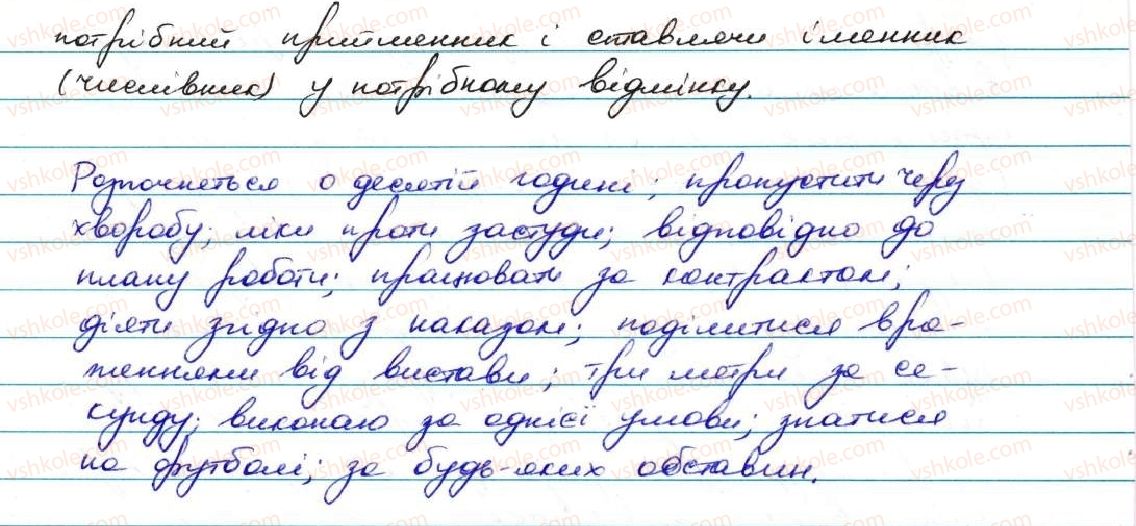 потрібний прийменник і ставлячи іменник
(числівник) у потрібному відмінку.
Розпочнеться о десятій годині; пропустити через
хворобу; ліки проти застуди; відповідно до
плану роботи; працювати за контрактом;
діяти згідно з наказом; поділитися вра-
женнями від вистави; три метри за се-
кунду; виконаю за однієї умови; знатися
на футболі; за будь-яких обставин.